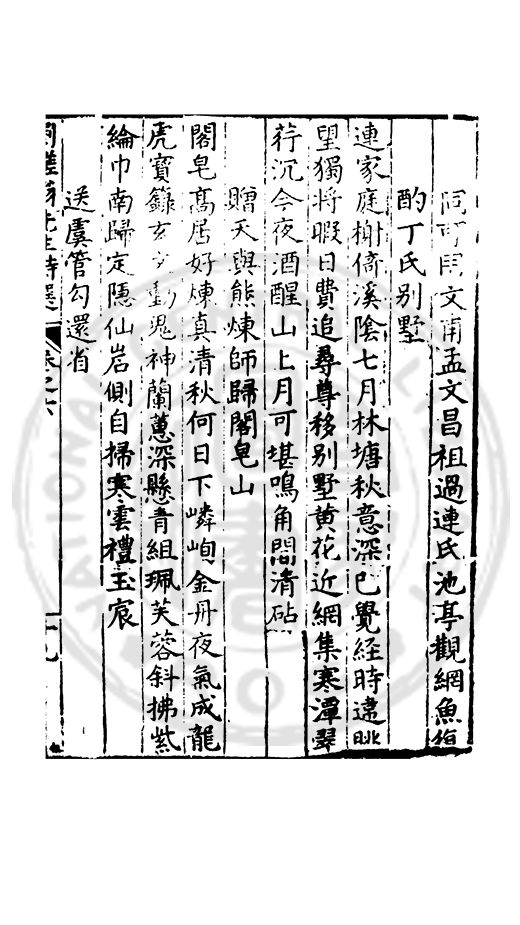 同可用文甫孟文昌祖過連氏池亭觀網魚復
酌丁氏别墅
連家庭榭倚溪陰七月林塘秋意深已覺経時違眺
望獨将暇日費追尋尊移别墅黄花近網集寒潭翠
荇沉今夜酒醒山上月可堪鳴角間清砧
贈天與熊煉師歸閣皂山
閣皂髙居好煉真清秋何日下嶙峋金丹夜氣成龍
虎寳籙動鬼神蘭蕙深懸青組珮芙蓉斜拂紫
綸巾南歸定隠仙岩側自掃寒雲禮玉宸
送虞管勾還省
先生詩選 卷之六 十九